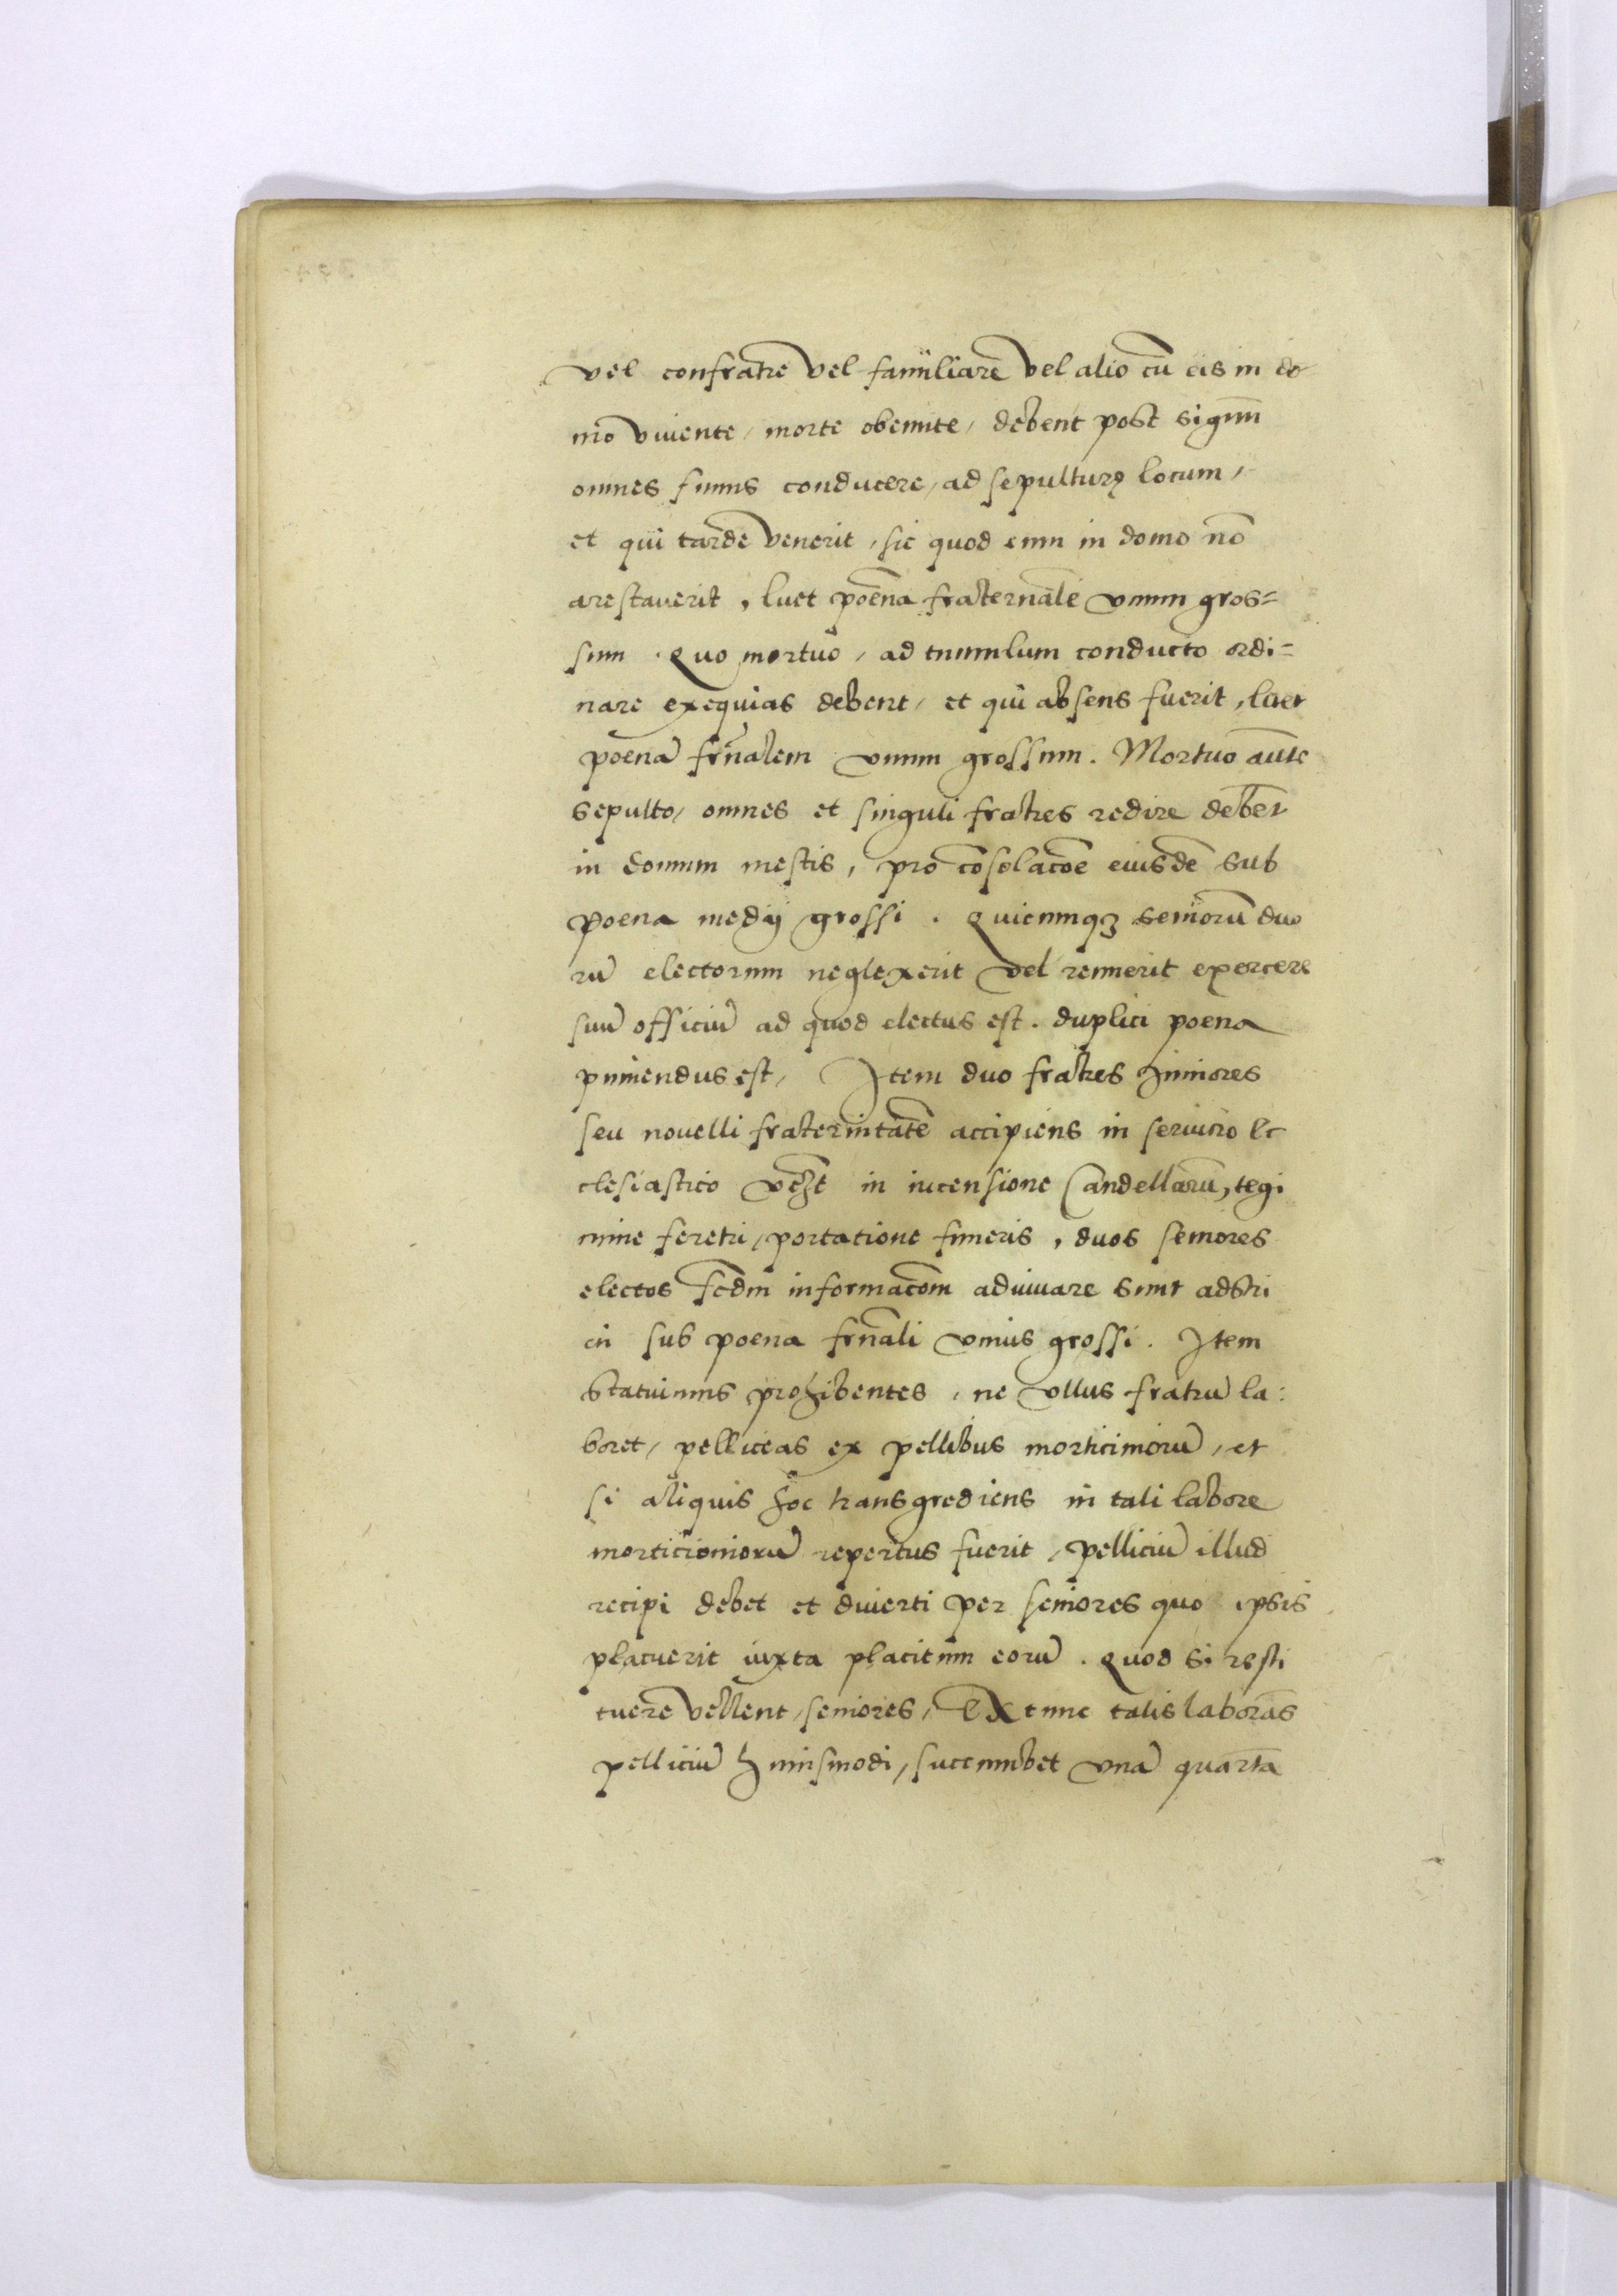 vel confratre vel familiarē vel alio cū eis in do
mo viuente, morte obeunte, debent post signū
omnes funus conducere, ad sepulturę locum,
et qui tarde venerit, sic quod eum in domo nō
arestauerit, luet poena fraternale vnum gros=
sum. Quo mortuo, ad tumulum conducto ordi=
nare exequias debent, et qui absens fuerit, luet
poenā frnalem vnum grossum. Mortuo aute
sepulto, omnes et singuli fratres redire debēt
in domum mestis, pro cōsolacōe eiusdē sub
poena medÿ grossi. Quicumqꝫ seniorū duo
rū electorum neglexerit vel renuerit exercere
suū officiū ad quod electus est. duplici poena
puniendus est, Item duo fratres Iuniores
seu nouelli fraternitatē accipiens in seruicio Ec
clesiastico vꝫt in incensione Candellarū, tegi
mine feretri, portatione funeris, duos seniores
electos scdm informacōm adiuuare sunt adstri
cti sub poena frnali vnius grossi. Item
Statuimus prohibentes, ne vllus fratrū la:
boret, pelliceas ex pellibus morticinorū, et
si aliquis hoc transgrediens in tali labore
morticinorū repertus fuerit, pelliciū illud
recipi debet et diuerti per seniores quo ipsis
placuerit iuxta placitum eorū. Quod si resti
tuere vellent, seniores, Ex tunc talis laborās
pelliciū huiusmodi, succumbet vnā quartā